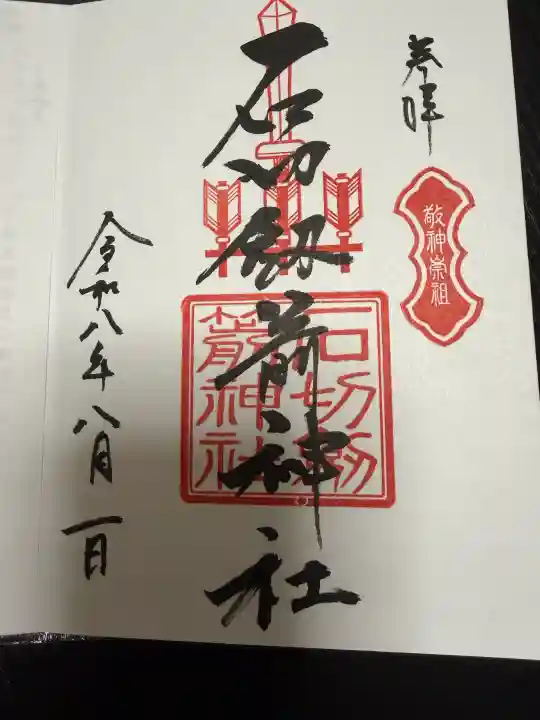 奉拝
敬神崇祖
石切劔箭神社
石切劔
箭神社
令和八年八月一日